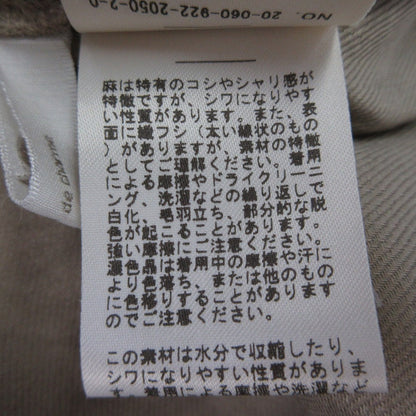 NO. 20-060-922-2050-2-0
de Charme
麻は特有のコシやシャリ感が
特徴ですが、シワになりやす
い性質があります。また、表
面に繊フシ(太い線状のもの
)がありますが、素材の特徴
としてご理解ください。着用
による摩擦やドライクリーニ
ング、洗濯などの繰り返しで
白化、毛羽立ち、部分的な脱
色が起こることがあります。
強い摩擦にご注意ください。
濃色品は着用中の摩擦や汗に
より色落ち、または他のもの
に色移りすることがあります
のでご注意ください。
この素材は水分で収縮したり、
シワになりやすい性質があり
ます。着用による摩擦や洗濯など